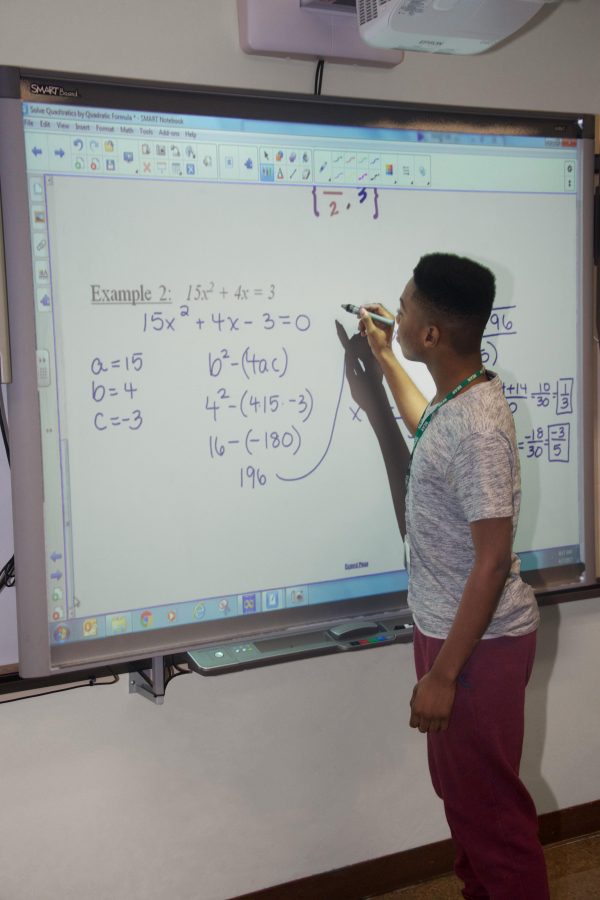 EPSON
SMART Board
Solve Quadratics by Quadratic Formula * - SMART Notebook
File Edit View Insert Format Math Tools Add-ons Help
{ 2 , 3 }
Example 2: 15x² + 4x = 3
15x² + 4x - 3 = 0
a = 15
b = 4
c = -3
b² - (4ac)
4² - (4·15·-3)
16 - (-180)
196
x
96
+14 = 10/30 = 1/3
= -18/30 = -3/5